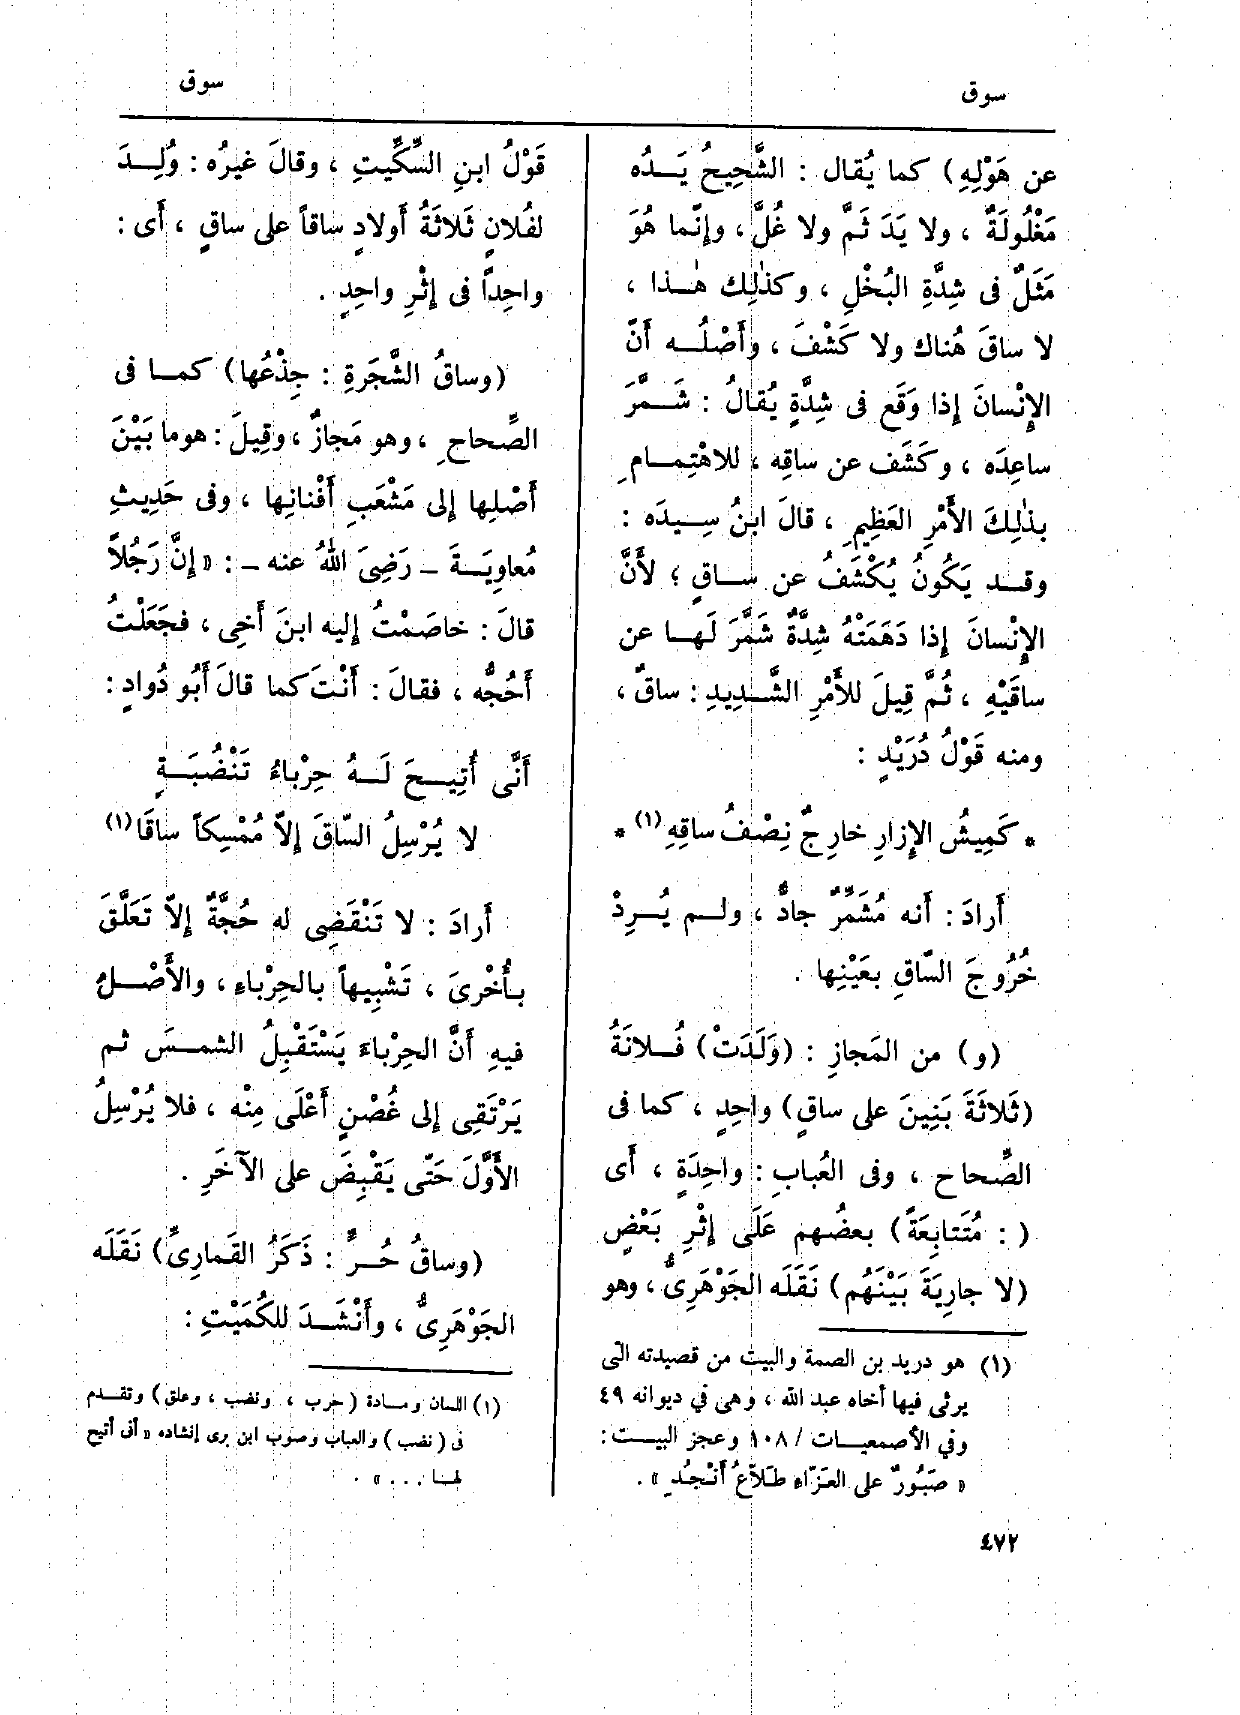 سوق
سوق
عن هَوْلِهِ) كما يُقال : الشَّحِيحُ يَـدُه
مَغْلُولَةٌ ، ولا يَدَ ثَمَّ ولا غُلَّ ، وإنَّما هُوَ
مَثَلٌ فى شِدَّةِ البُخْلِ ، وكذٰلِك هٰـذا ،
لا ساقَ هُناك ولا كَشْفَ ، وأَصْلُـه أَنَّ
الإِنْسانَ إذا وَقَع فى شِدَّةٍ يُقالُ : شَـمَّرَ
ساعِدَه ، وكَشَف عن ساقِه ، للاهْتِمـامِ
بذٰلِكَ الأَمْرِ العَظِيمِ ، قالَ ابنُ سِـيدَه :
وقـد يَكُونُ يُكْشَفُ عن سـاقٍ ؛ لأَنَّ
الإِنْسانَ إذا دَهَمَتْهُ شِدَّةٌ شَمَّرَ لَهـا عن
ساقَيْهِ ، ثُمَّ قِيلَ للأَمْرِ الشَّـدِيدِ : ساقٌ ،
ومنه قَوْلُ دُرَيْدٍ :
* كَمِيشُ الإِزارِ خارِجٌ نِصْفُ ساقِهِ (١) *
أَرادَ : أَنه مُشَمِّرٌ جادٌّ ، ولـم يُـرِدْ
خُرُوجَ السّاقِ بعَيْنِها .
(و) من المَجازِ : (وَلَدَتْ) فُـلانَةُ
(ثَلاثَةَ بَنِينَ على ساقٍ) واحِدٍ ، كما فى
الصِّحاح ، وفى العُبابِ : واحِدَةٍ ، أَى
( : مُتَتابِعَةً) بعضُهم عَلَى إِثْرِ بَعْضٍ
(لا جارِيَةَ بَيْنَهُم) نَقَلَه الجَوْهَرِىُّ ، وهو
(١) هو دريد بن الصمة والبيت من قصيدته الّتى
يرثى فيها أخاه عبد الله ، وهى في ديوانه ٤٩
وفي الأصمعيـات / ١٠٨ وعجز البيـت :
« صَبُورٌ على العَزّاءِ طَلاّعُ أَنْجُدِ » .
قَوْلُ ابنِ السِّكِّيتِ ، وقالَ غيرُه : وُلِـدَ
لفُلانٍ ثَلاثَةُ أَولادٍ ساقاً على ساقٍ ، أَى :
واحِداً فى إِثْرِ واحِدٍ .
(وساقُ الشَّجَرةِ : جِذْعُها) كمـا فى
الصِّحاحِ ، وهو مَجازٌ ، وقِيلَ : هوما بَيْنَ
أَصْلِها إلى مَشْعَبِ أَفْنانِها ، وفى حَدِيثِ
مُعاوِيَـةَ ـ رَضِىَ اللهُ عنه ـ : « إنَّ رَجُلاً
قالَ : خاصَمْتُ إليه ابنَ أَخِى ، فجَعَلْتُ
أَحُجُّه ، فقالَ : أَنْتَ كما قالَ أَبُو دُوادٍ :
أَنَّى أُتِيـحَ لَـهُ حِرْباءُ تَنْضُبَـةٍ
لا يُرْسِلُ السّاقَ إلاّ مُمْسِكاً ساقَا (١)
أَرادَ : لا تَنْقَضِى له حُجَّةٌ إلاّ تَعَلَّقَ
بـأُخْرىَ ، تَشْبِيهاً بالحِرْباءِ ، والأَصْـلُ
فيهِ أَنَّ الحِرْباءَ يَسْتَقْبِلُ الشمـسَ ثم
يَرْتَقِى إلى غُصْنٍ أَعْلَى مِنْه ، فلا يُرْسِلُ
الأَوَّلَ حَتّى يَقْبِضَ على الآخَرِ .
(وساقُ حُـرٍّ : ذَكَرُ القَمارِىِّ) نَقَلَه
الجَوْهَرِىُّ ، وأَنْشَـدَ للكُمَيْتِ :
(١) اللسان ومـادة (حرب ، ونضب ، وعلق) وتقـدم
فى (نضب) والعباب وصوب ابن برى إنشاده « أنى أتيح
لهـا . . . » .
٤٧٢